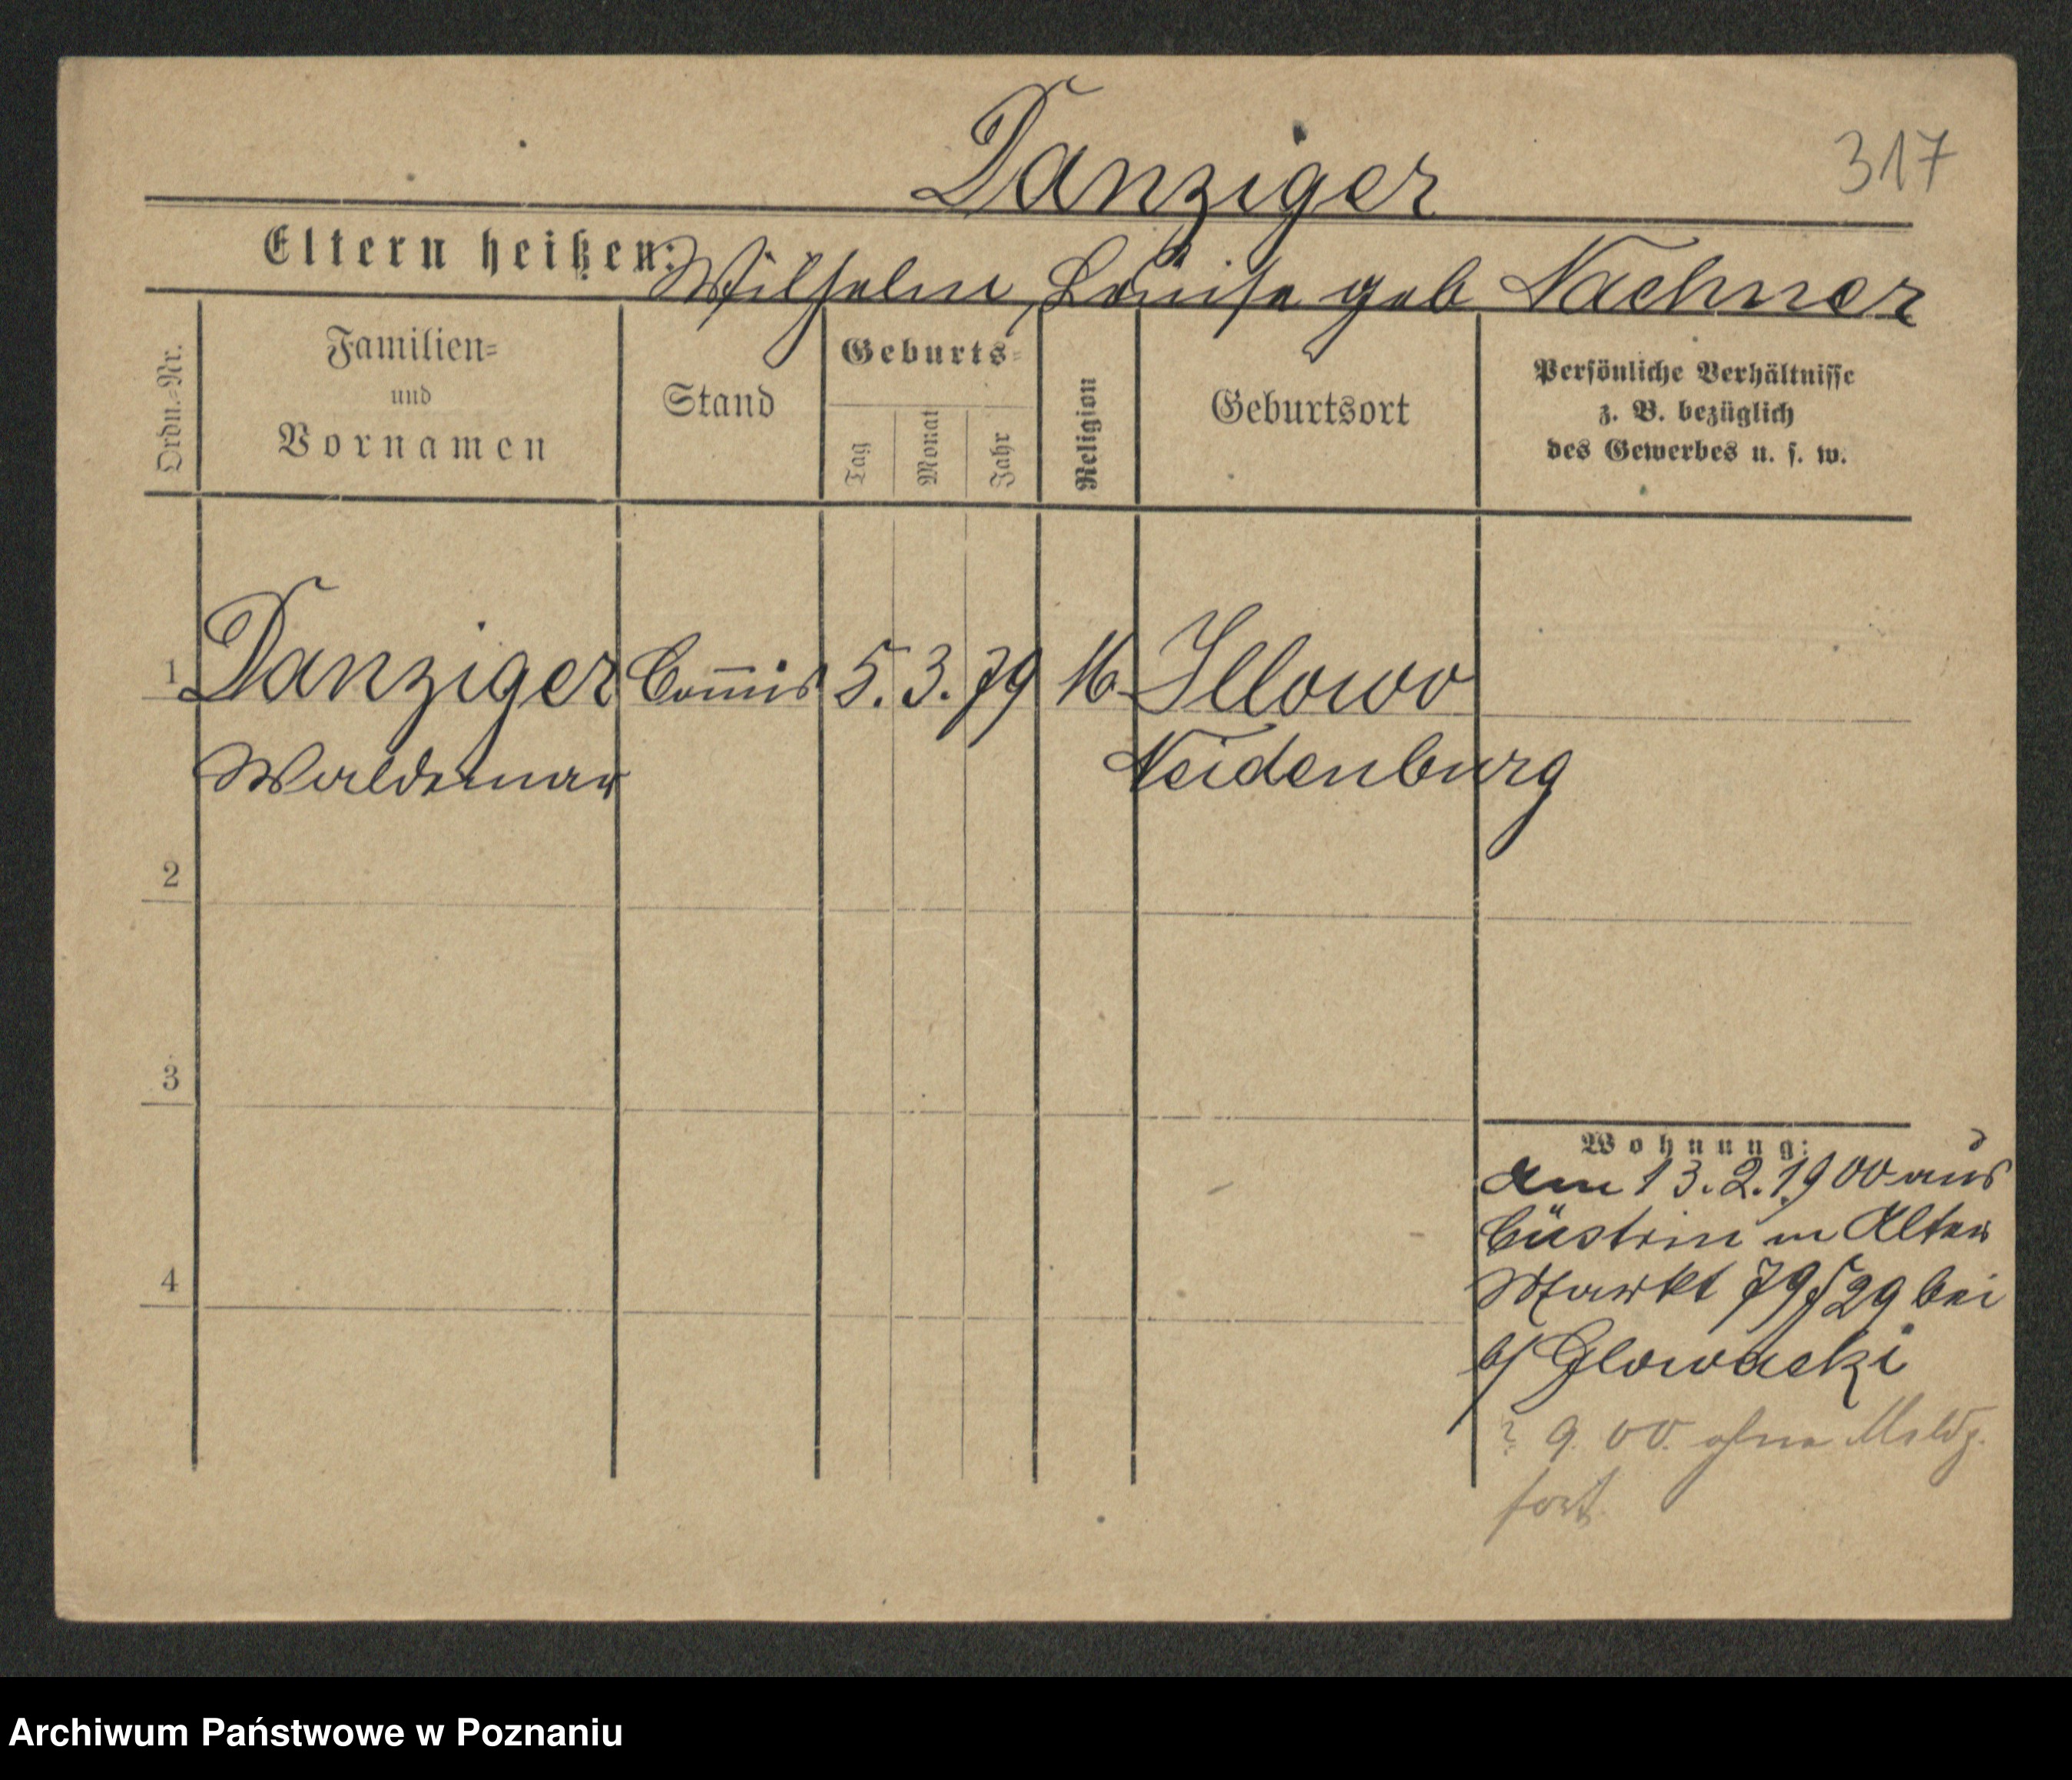 Danziger
317
Eltern heißen: Wilhelm, Louise geb Nachner
Ordn.=Nr.
Familien=
und
Vornamen
Stand
Geburts=
Tag
Monat
Jahr
Religion
Geburtsort
Persönliche Verhältnisse
z. B. bezüglich
des Gewerbes u. s. w.
1 Danziger Com̅is 5. 3. 79 Illowo
Waldemar Neidenburg
2
3
Wohnung:
Am 13.2.1900 aus
Cüstrin n Alter
Markt 79/29 bei
b/ Glowacki
4
? 9. 00. ohne Meldg.
fort
Archiwum Państwowe w Poznaniu